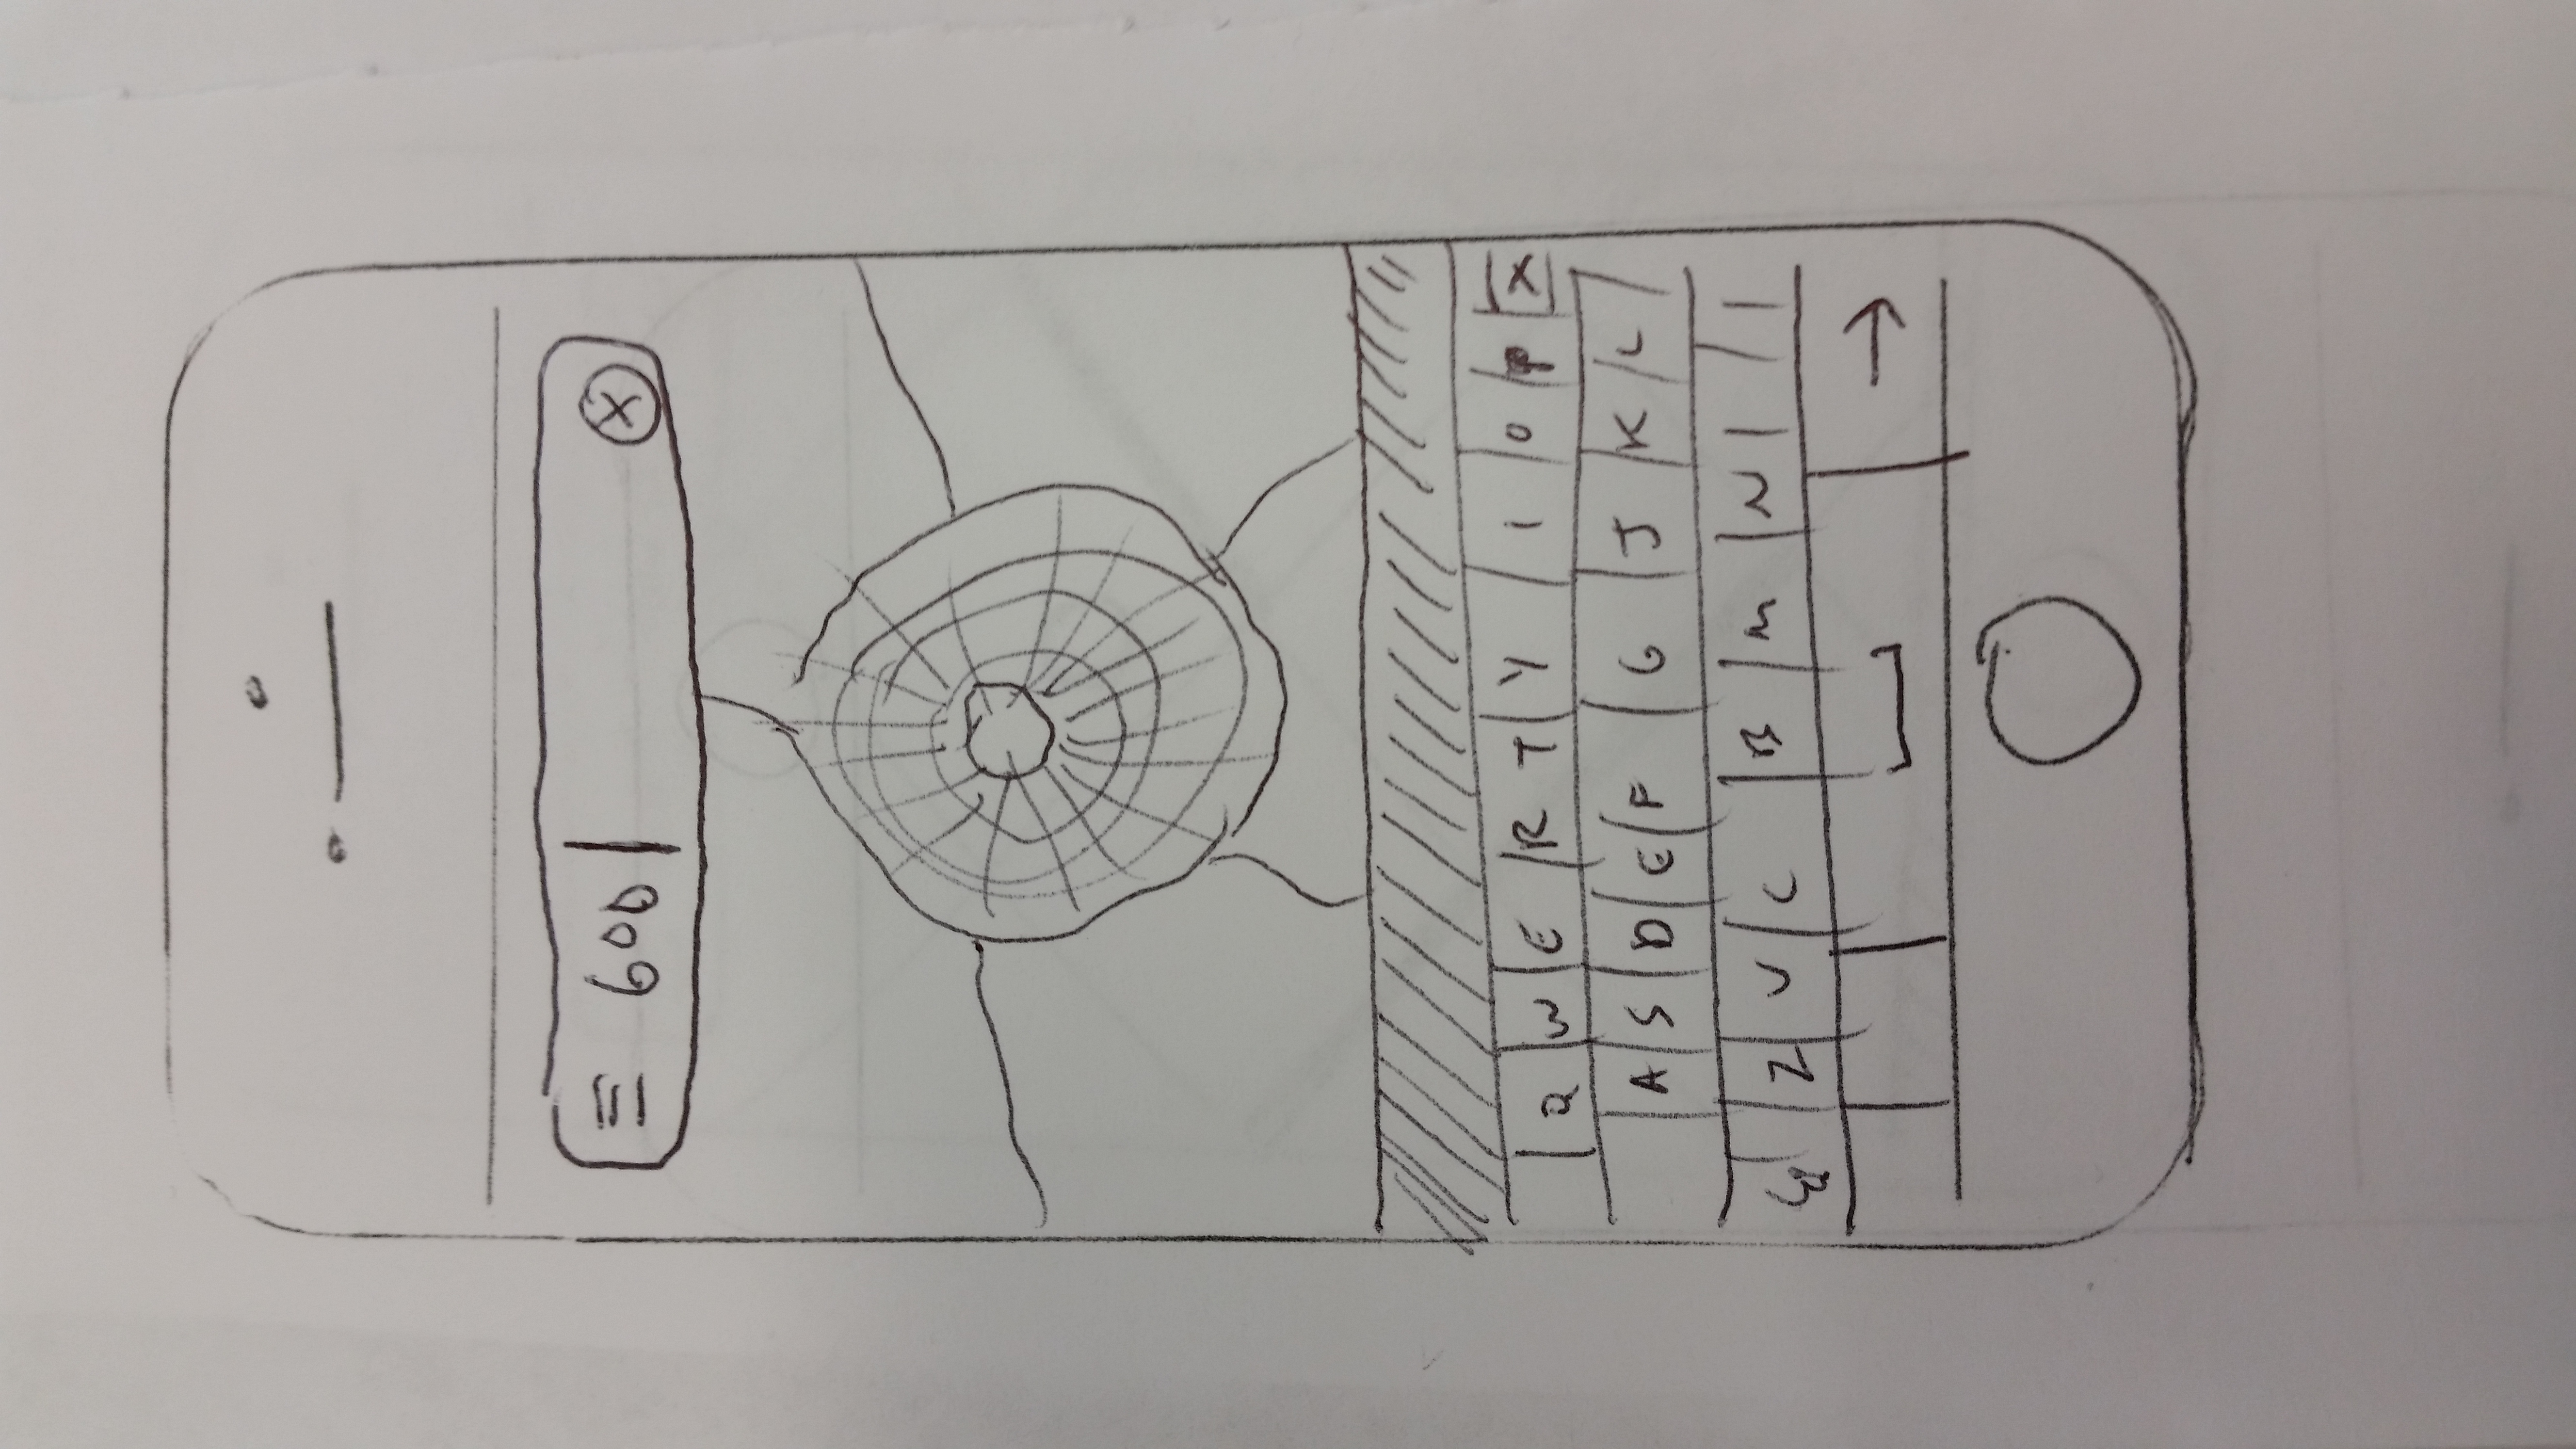 600
Q W E R T Y I O P X
A S D E F G J K L
Z V C B M N